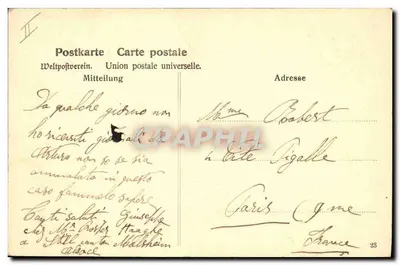 II
Postkarte Carte postale
Weltpostverein. Union postale universelle.
Mitteilung
Adresse
Da qualche giorno non
ho ricevuti giornali da
Arturo non so se sia
ammalato in questo
caso fammelo sapere
Tanti saluti Giuseppe
chez Mr
a
Molsheim
Alsace
Mme Robert
2 Cité Pigalle
Paris 9me
France
23